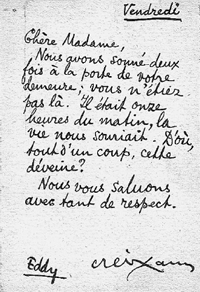 Vendredi
Chère Madame,
Nous avons sonné deux
fois à la porte de votre
demeure ; vous n'étiez
pas là. Il était onze
heures du matin, la
vie nous souriait. D'où,
tout d'un coup, cette
déveine ?
Nous vous saluons
avec tant de respect.
Eddy